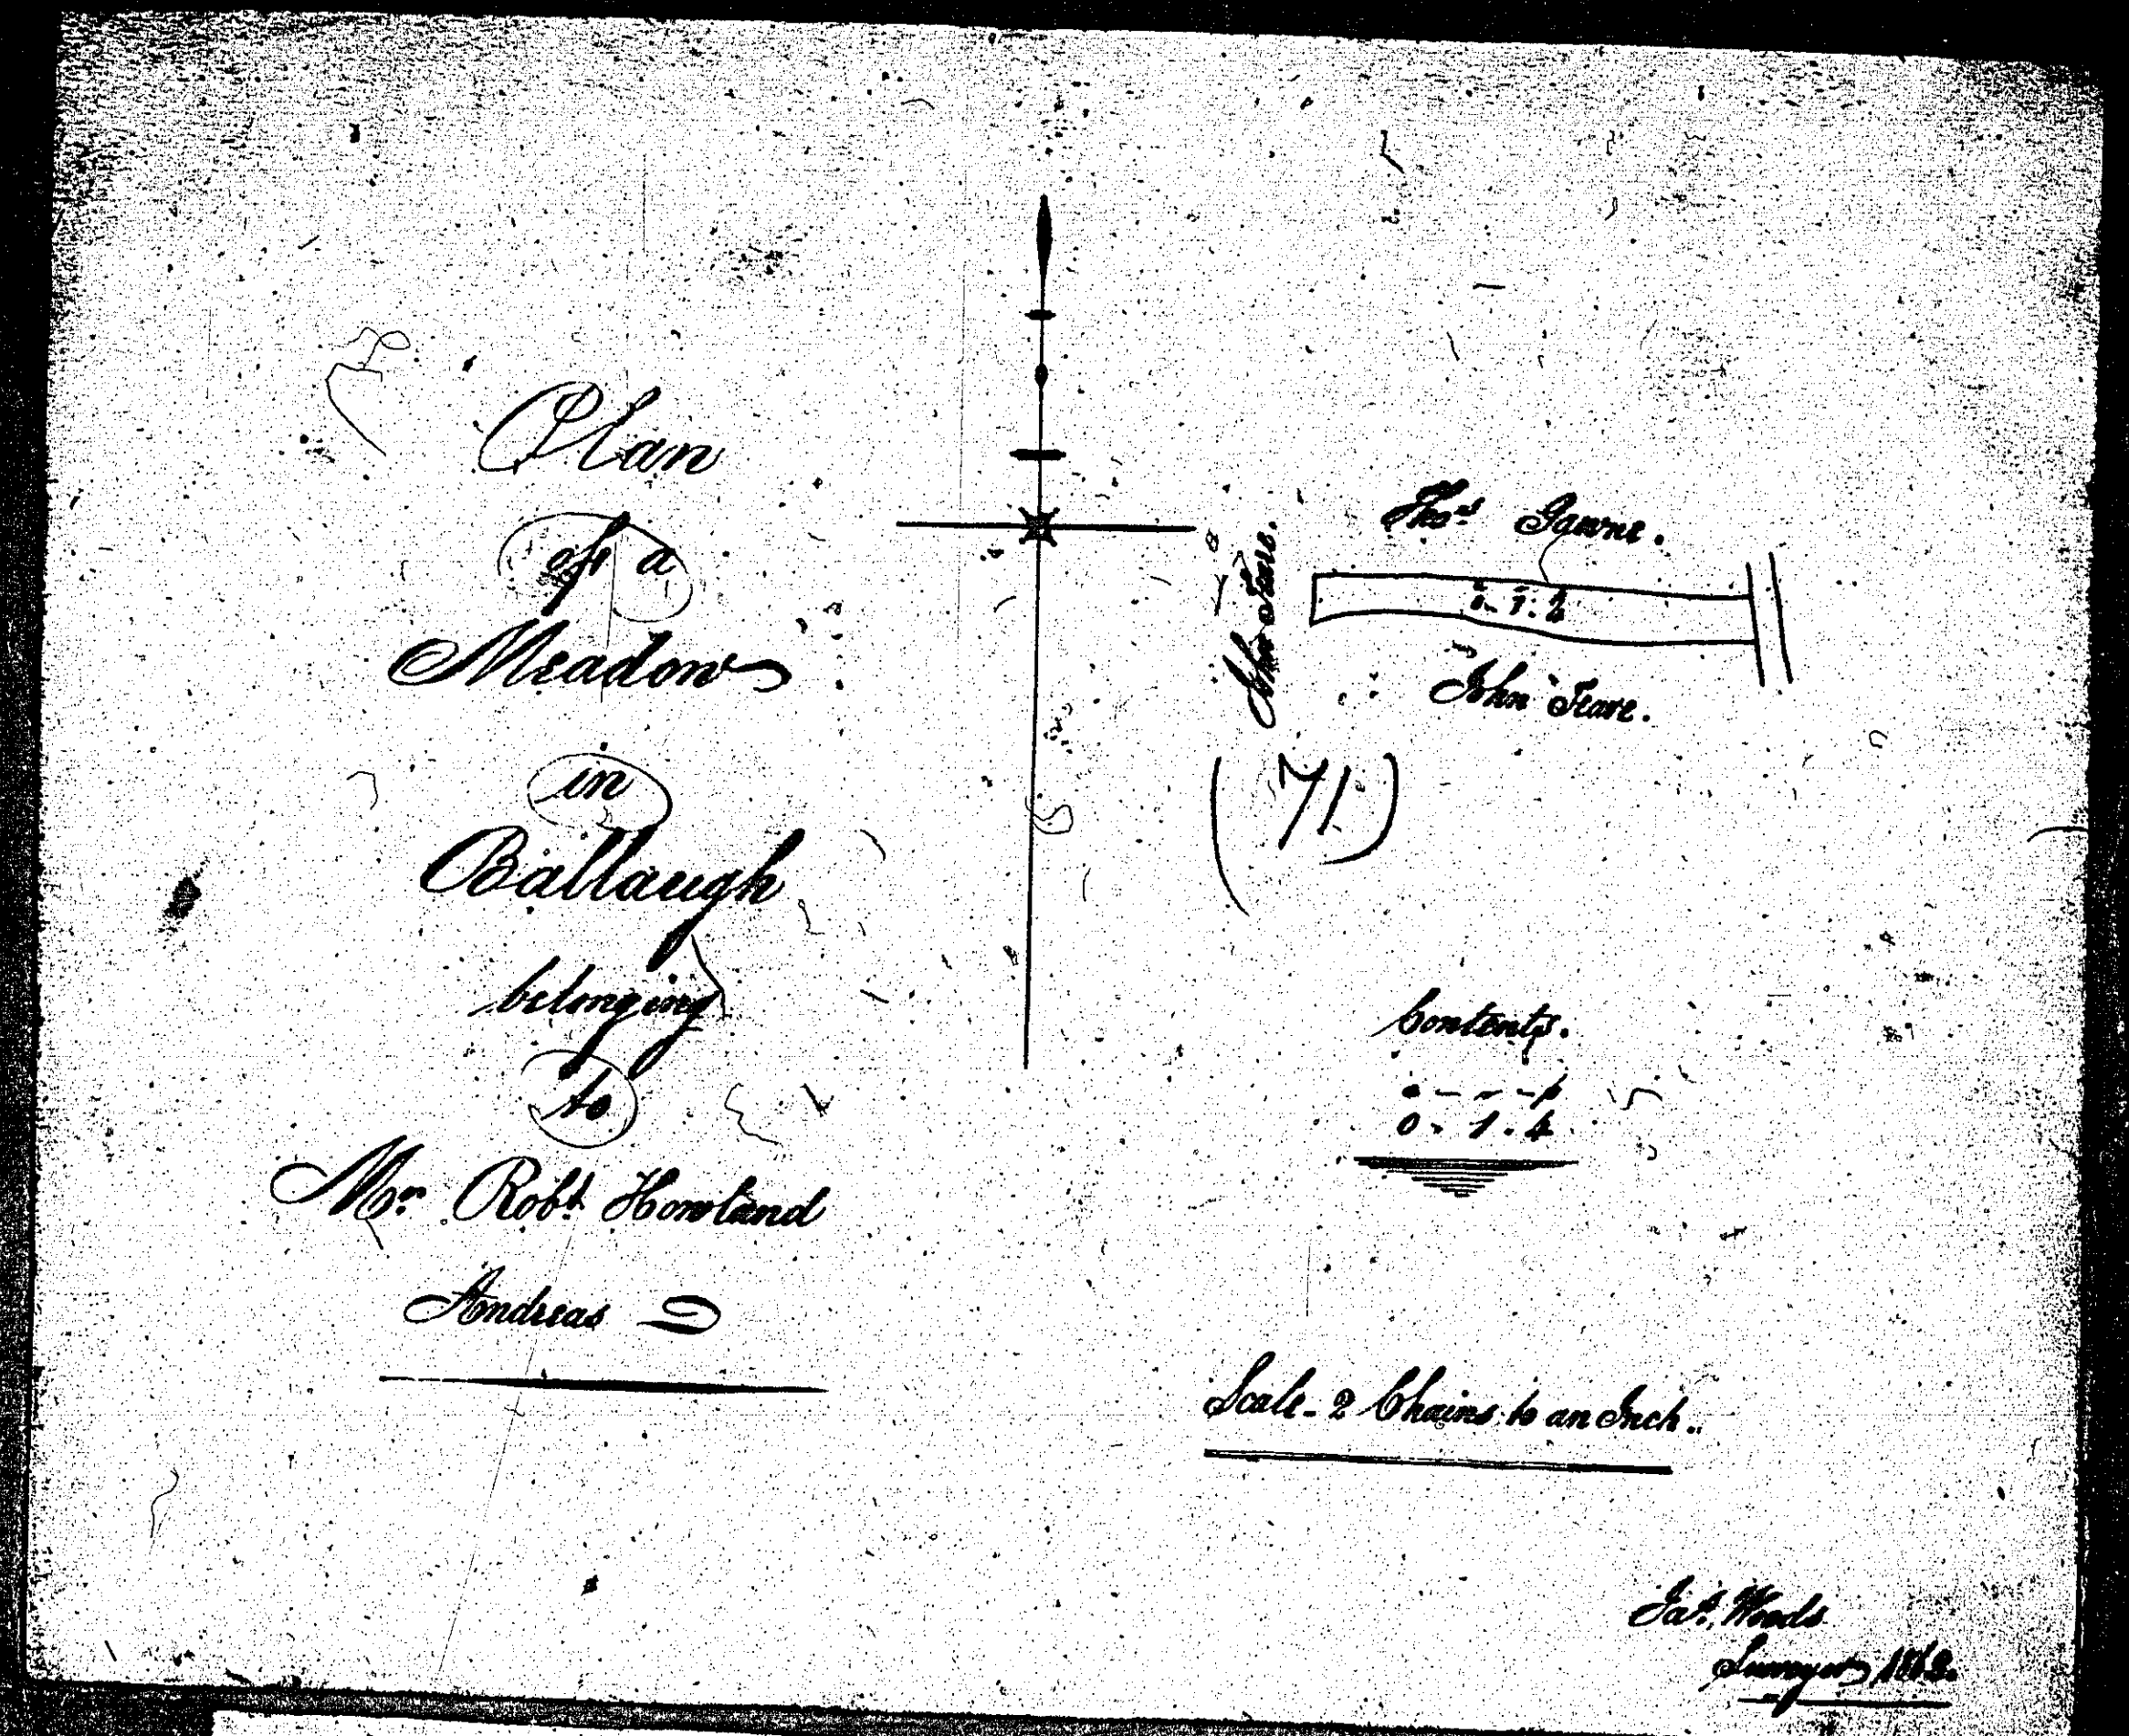 Plan
of a
Meadow
in
Ballaugh
belonging
to
Mr. Robt. Howland
Andreas
Thos. Gawne.
John Teare.
0 - 1 - 4
John Teare.
(71)
Contents.
0 - 1 - 4
Scale - 2 Chains to an Inch.
Jas. Woods
Surveyor